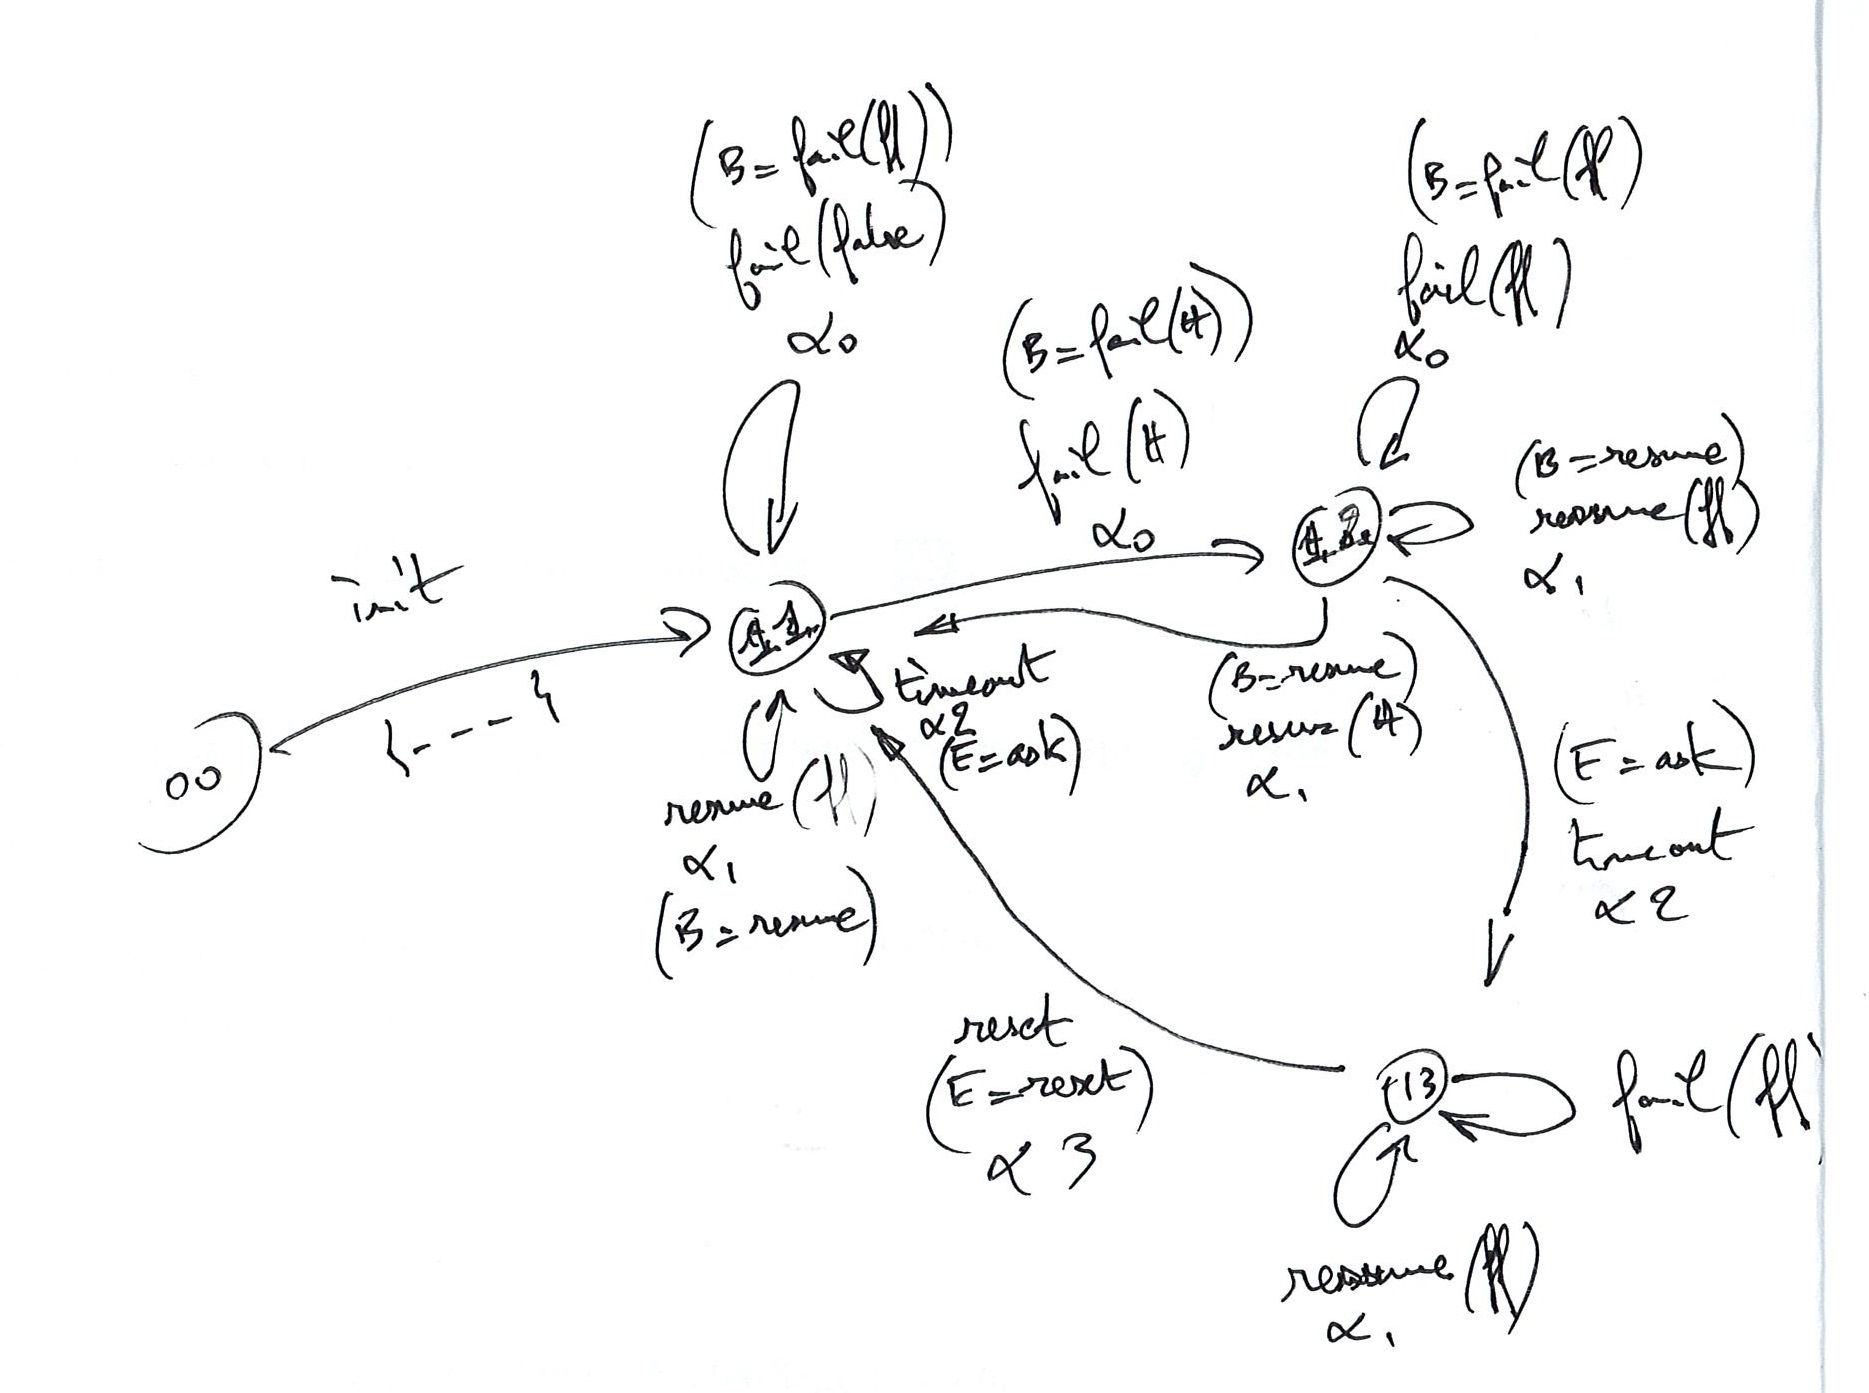 (B = fail(ff))
fail(false)
α0
(B = fail(ff)
fail(ff)
α0
(B = fail(tt))
fail(tt)
α0
(B = resume)
ressume(ff)
α1
init
{----}
00
timeout
α2
(E = ask)
(B = resume)
resume(tt)
α1
resume(ff)
α1
(B = resume)
(E = ask)
timeout
α2
reset
(E = reset)
α3
13
fail(ff)
ressume(ff)
α1